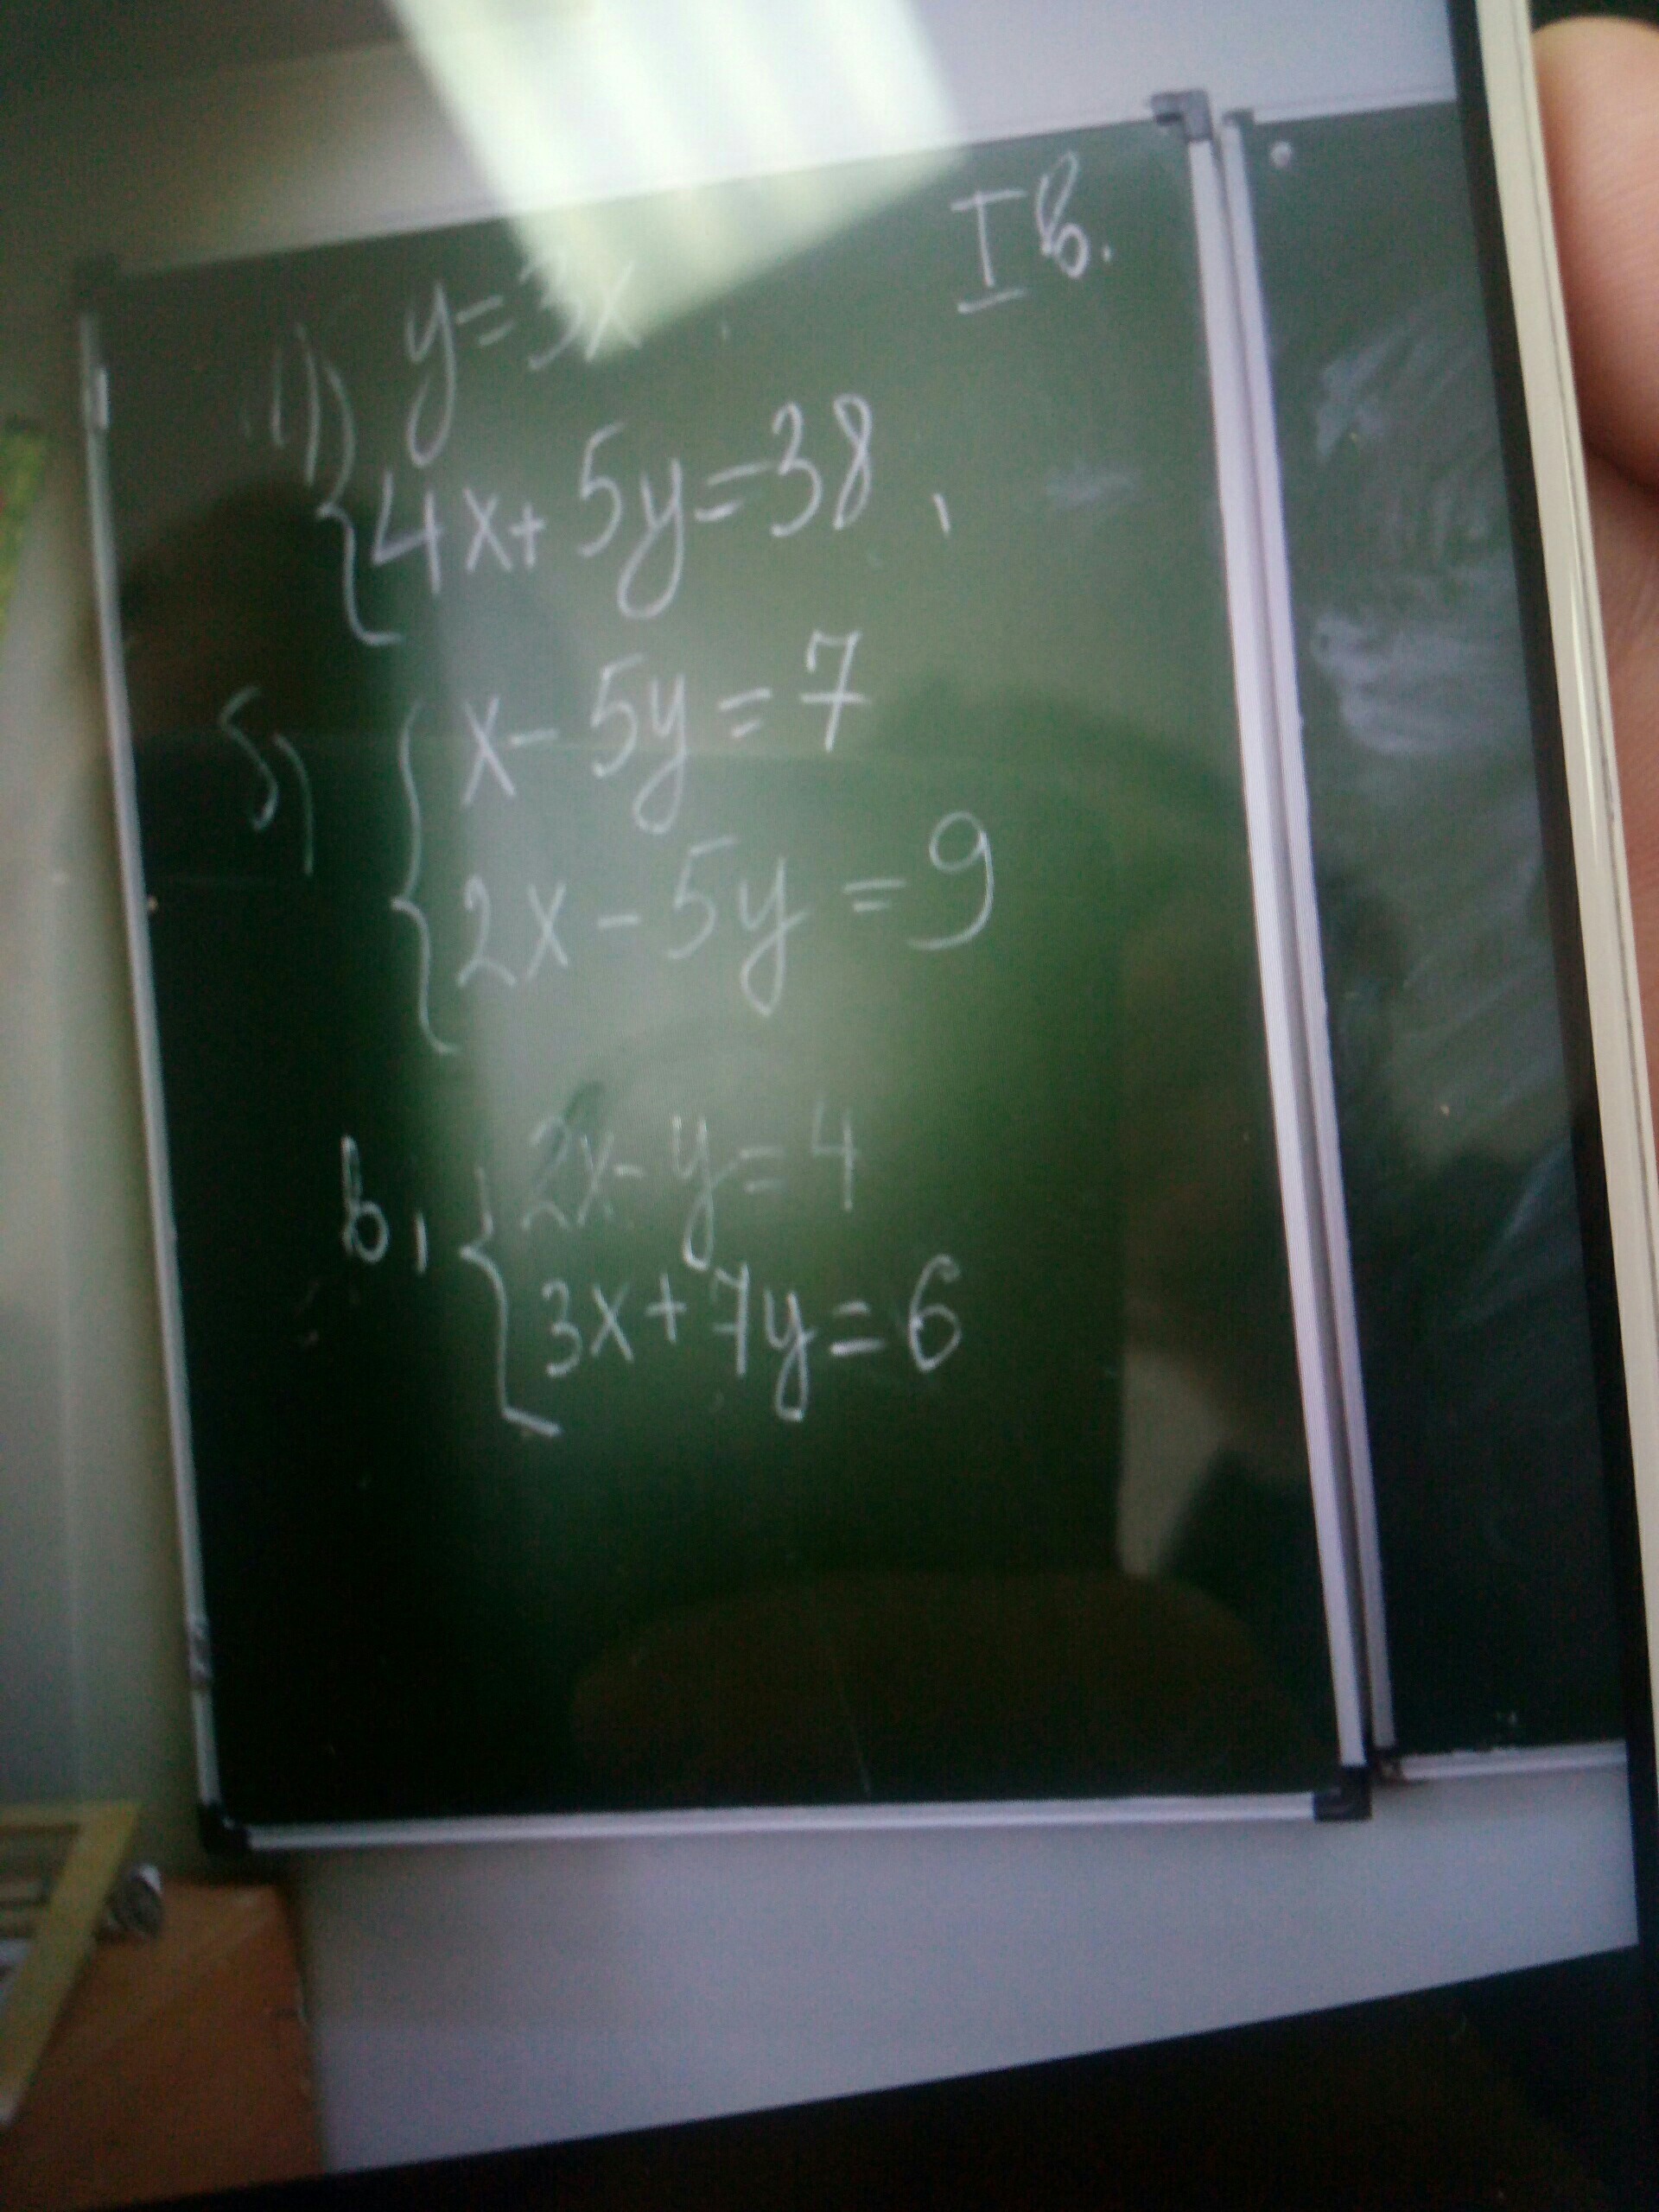 I в.
1) y=3x
4x+5y=38
5) x-5y=7
2x-5y=9
в) 2x-y=4
3x+7y=6